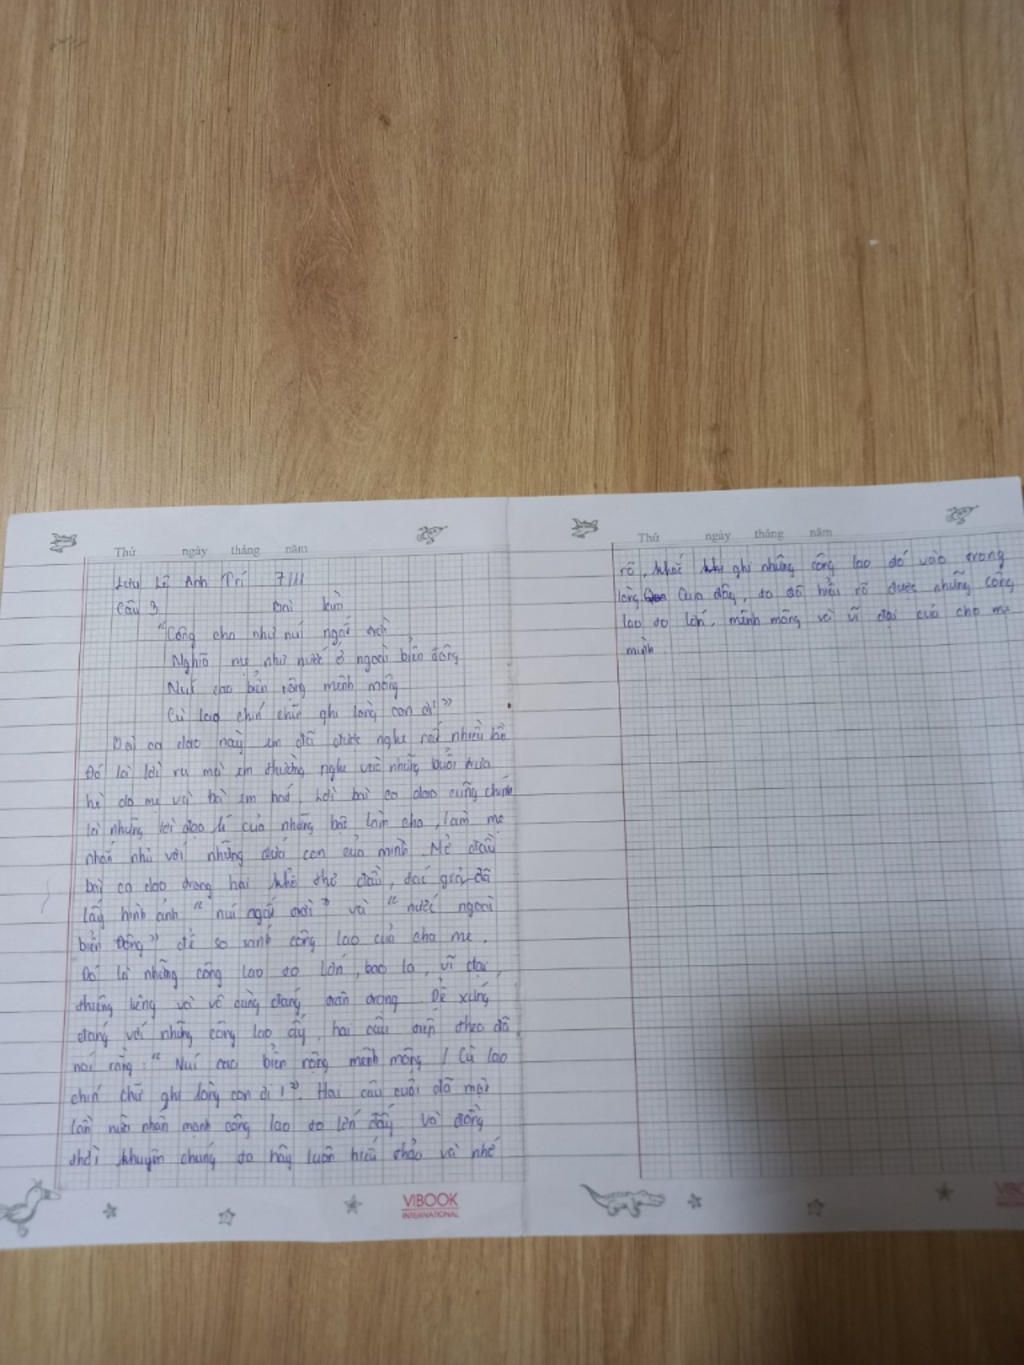 Thứ ngày tháng năm
Lưu Lê Anh Trí 7/11
Câu 3 Bài làm
"Công cha như núi ngất trời
Nghĩa mẹ như nước ở ngoài biển đông
Núi cao biển rộng mênh mông
Cù lao chín chữ ghi lòng con ơi!"
Bài ca dao này em đã được nghe rất nhiều lần
Đó là lời ru mà em thường nghe vào những buổi trưa
hè do mẹ và bà em hát. Lời bài ca dao cũng chính
là những lời đạo lí của những bậc làm cha, làm mẹ
nhắn nhủ với những đứa con của mình. Mở đầu
bài ca dao trong hai thơ đầu, tác giả đã
lấy hình ảnh "núi ngất trời" và "nước ngoài
biển Đông" để so sánh công lao của cha mẹ.
Đó là những công lao to lớn, bao la, vĩ đại,
thiêng liêng và vô cùng đáng trân trọng. Để xứng
đáng với những công lao ấy, hai câu tiếp theo đã
nói rằng: "Núi cao biển rộng mênh mông / Cù lao
chín chữ ghi lòng con ơi!". Hai câu cuối đã một
lần nữa nhấn mạnh công lao to lớn ấy và đồng
thời khuyên chúng ta hãy luôn hiếu thảo và nhớ
VIBOOK
INTERNATIONAL
Thứ ngày tháng năm
rõ, ghi những công lao đó vào trong
lòng. Qua đây, ta đã hiểu rõ được những công
lao to lớn, mênh mông và vĩ đại của cha mẹ
mình.